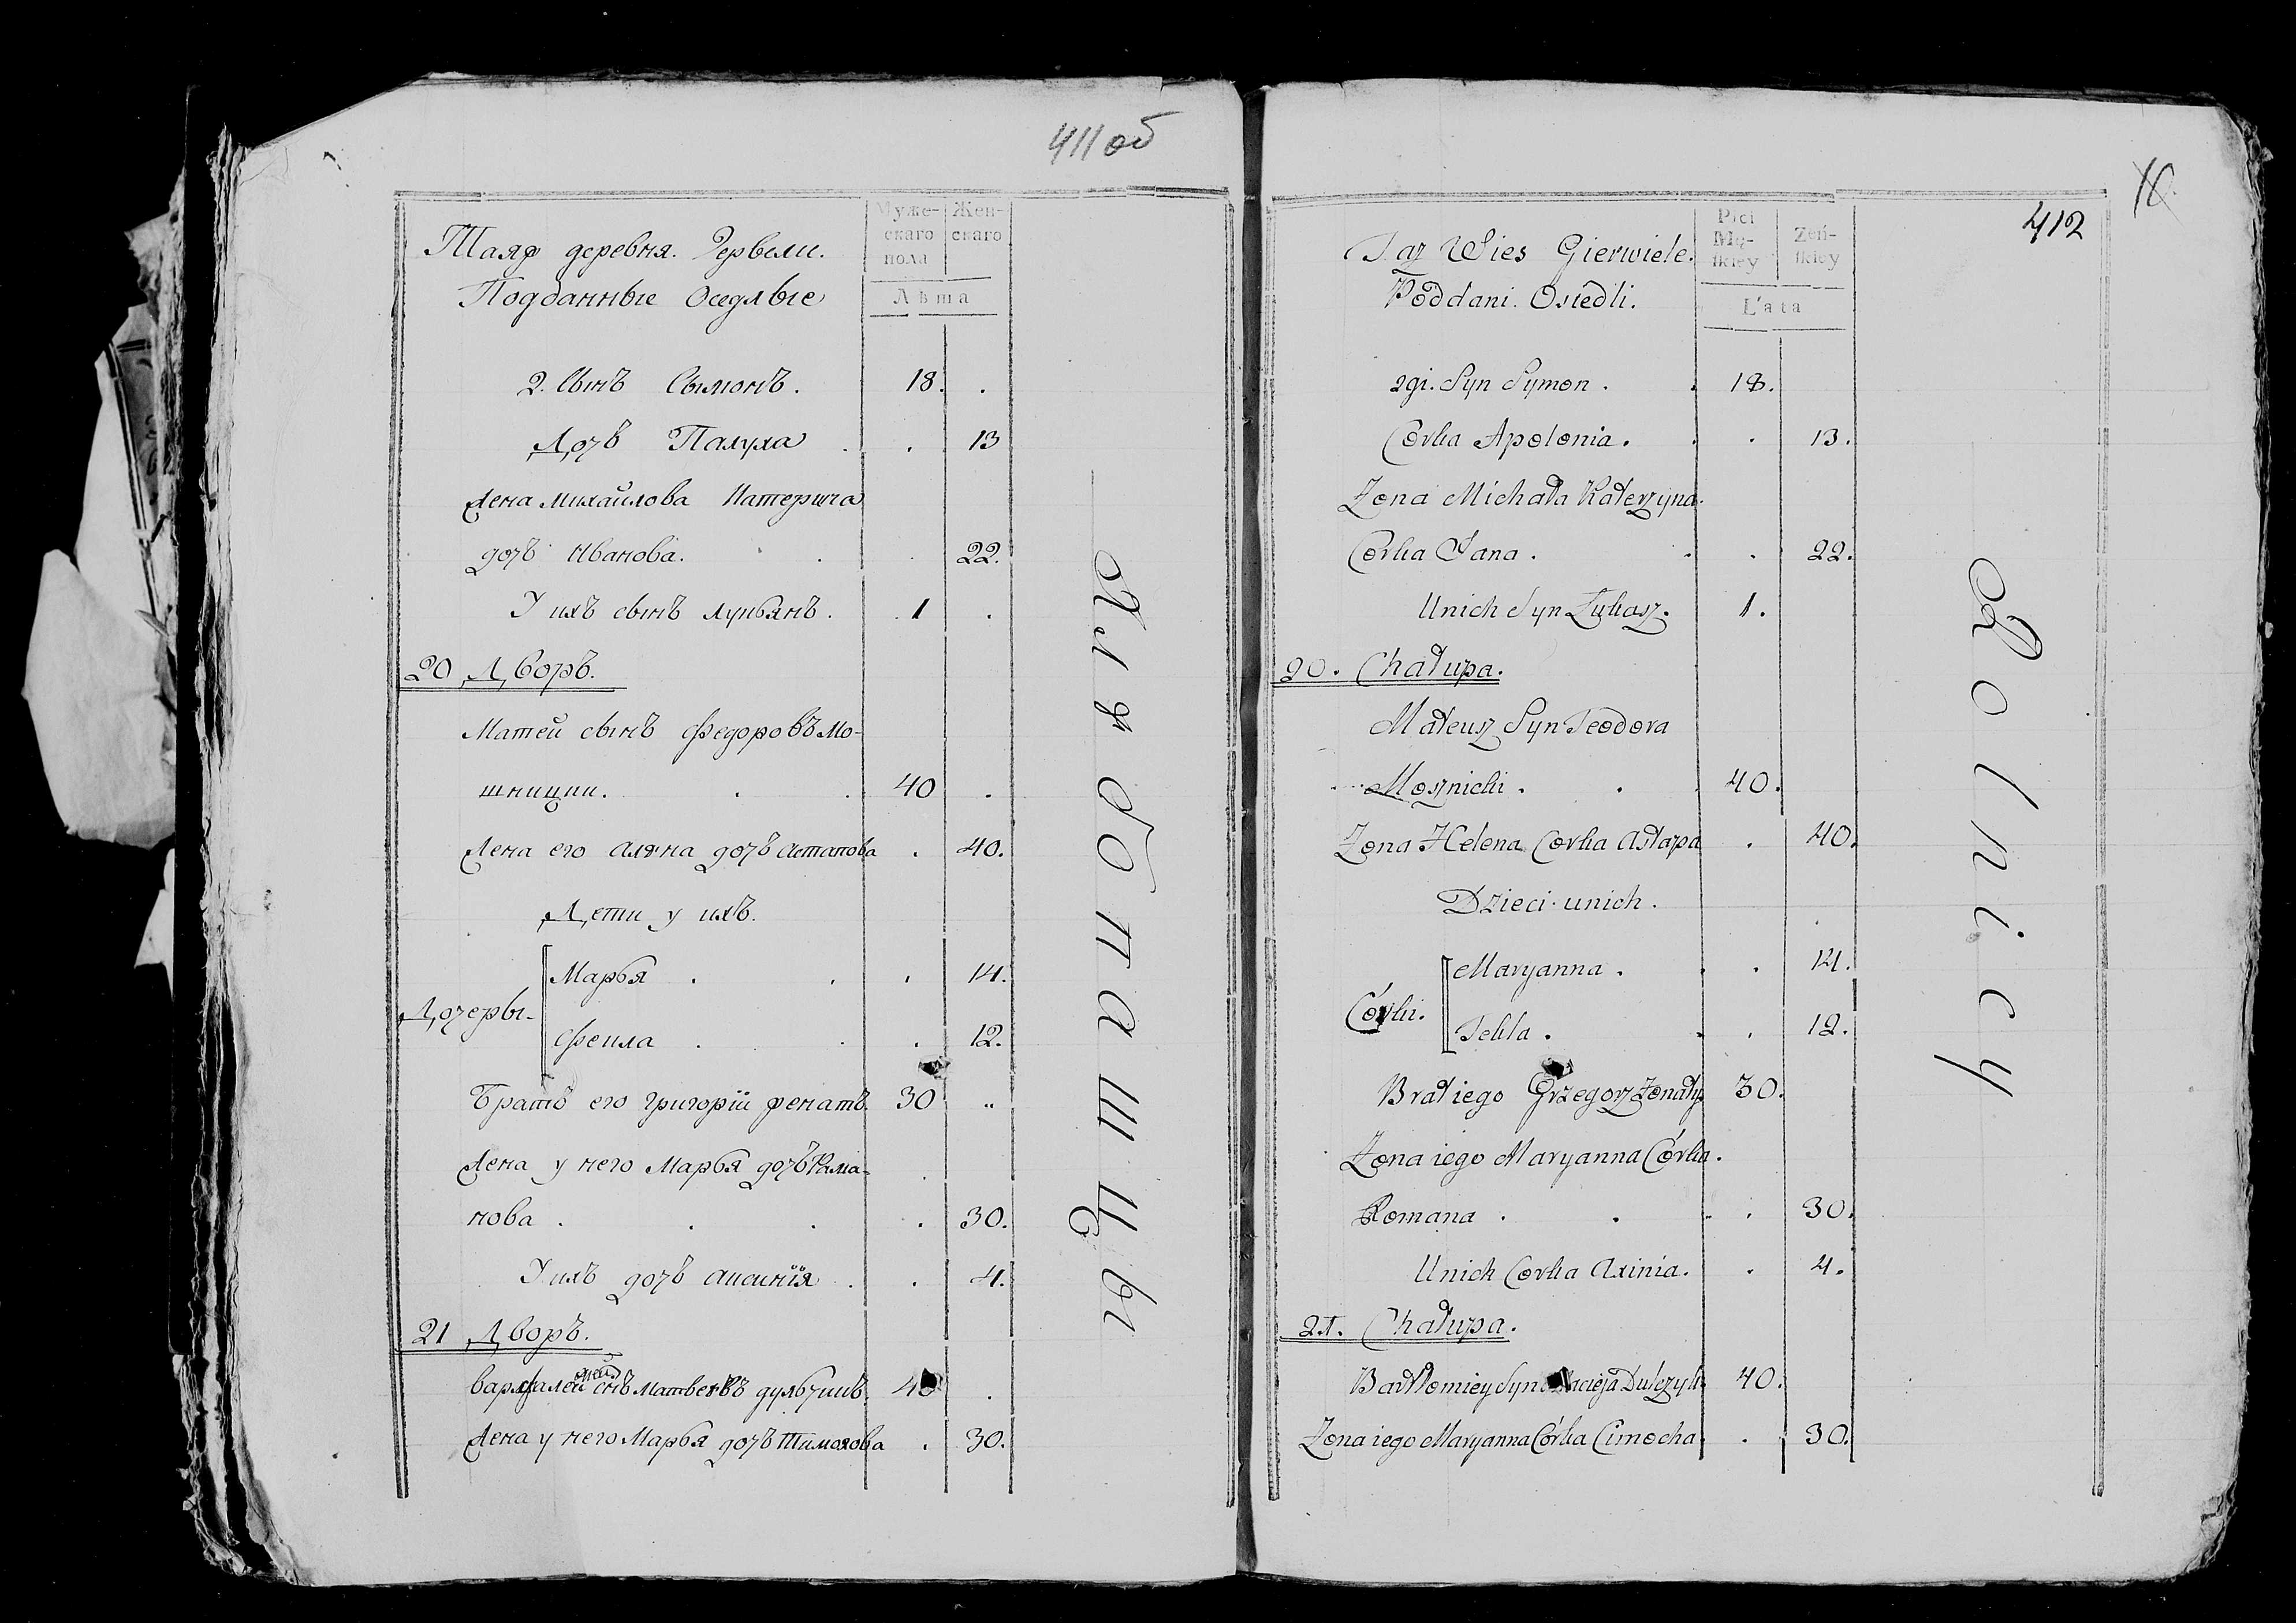 411 об
Муже-
скаго
пола
Жен-
скаго
Лѣта
Таяж деревня. Гервели.
Подданные Оседлые
2. Сынъ Сымонъ. 18. .
Дочъ Палуха . . 13
Жена Михайлова Катерина
дочъ Иванова. . . 22.
У ихъ сынъ Лукьянъ. 1 .
20 Дворъ.
Матей сынъ Федоровъ Мо-
шницки. . . 40 .
Жена его Алена дочъ Астапова . 40.
Дети у ихъ.
Дочеры-
Марья . . . 14.
Фекла . . . 12.
Братъ его Григорій женатъ. 30 ..
Жена у него Марья дочъ Рама-
нова . . . . 30.
У ихъ дочъ Аксинія . . 4.
21 Дворъ.
Варфалей снъ Матвеевъ Дульчикъ. 40 .
Жена у него Марья дочъ Тимохова . 30.
Хлябопашцы
412
Płci
Mę-
skiey
Żeń-
skiey
Lata
Taż Wies Gierwiele.
Poddani. Osiedli.
2gi. Syn Symon . . 18.
Corka Apolonia . . . 13.
Zona Michała Katerzyna.
Corka Jana . . . 22.
Unich Syn Łukasz. 1.
20. Chałupa.
Mateusz Syn Teodora
Mosznicki . . . 40.
Zona Helena Corka Astapa . 40.
Dzieci unich .
Córki.
Maryanna . . . 14.
Tekla . . . 12.
Brat iego Grzegorz Zonaty. 30.
Zona iego Maryanna Córka.
Romana . . . . 30.
Unich Corka Axinia. . 4.
21. Chałupa.
Bartłomiey Syn Macieja Dulczyk. 40.
Zona iego Maryanna Córka Cimocha. . 30.
Rolnicy